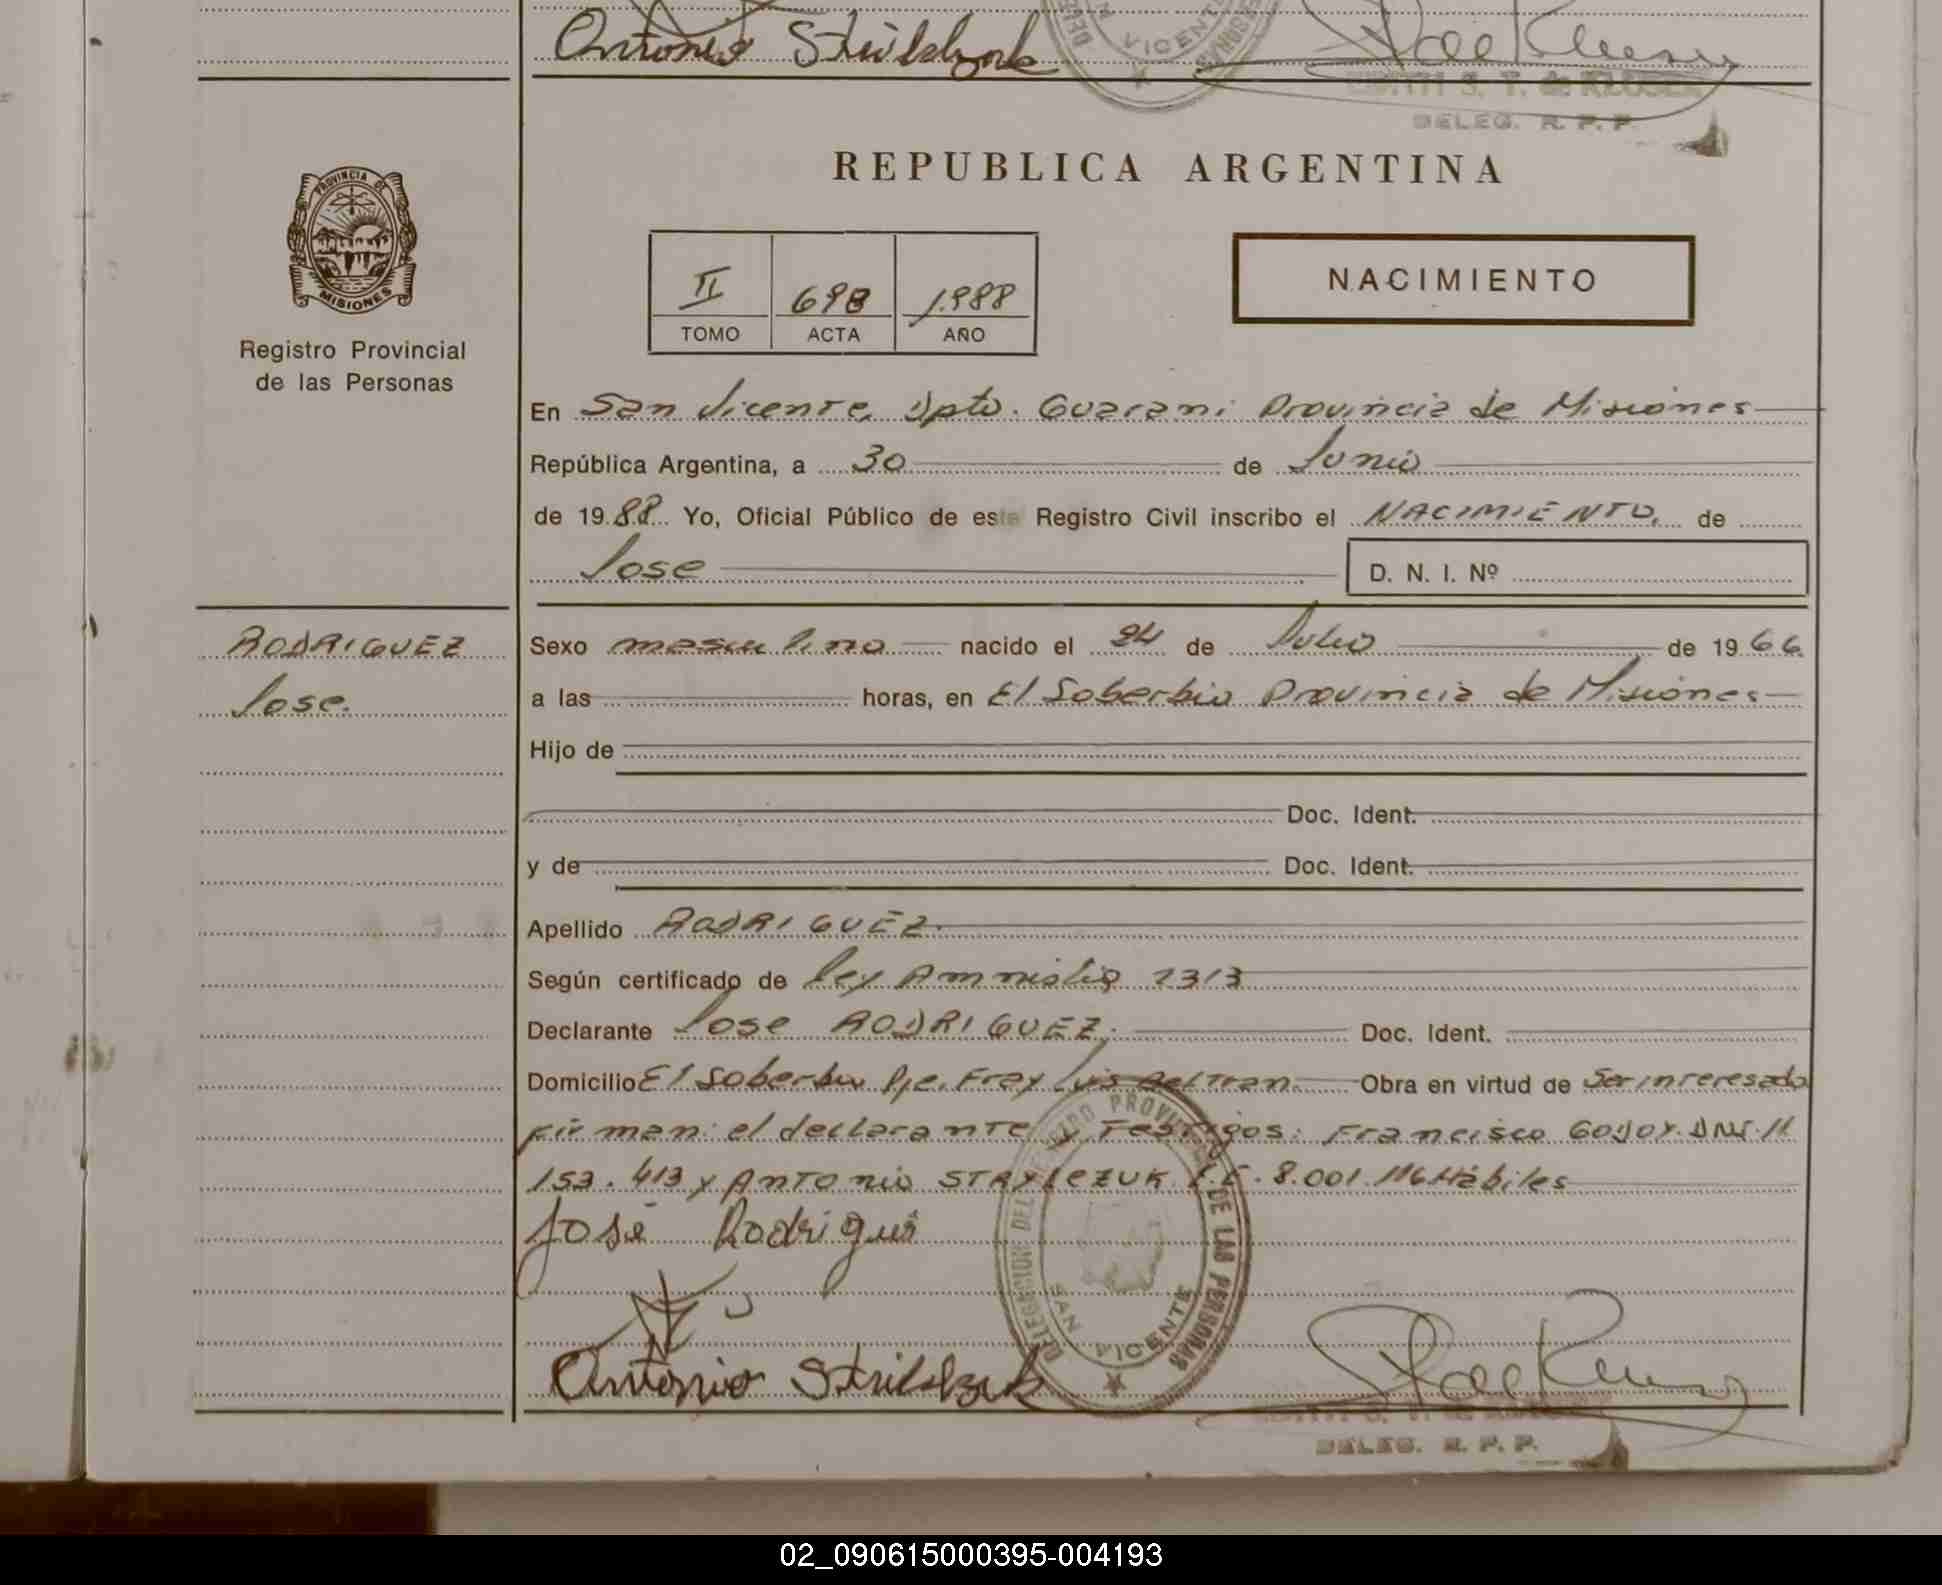 Antonio
VICENTE
DE KLUSER
DELEG. R. P. P.
REPUBLICA ARGENTINA
PROVINCIA DE
MISIONES
Registro Provincial
de las Personas
II 698 1988
TOMO ACTA AÑO
NACIMIENTO
En San Vicente, Dpto. Guarani Provincia de Misiones
República Argentina, a 30 de Junio
de 1988 Yo, Oficial Público de este Registro Civil inscribo el NACIMIENTO de
Jose D. N. I. Nº
RODRIGUEZ
Jose.
Sexo masculino nacido el 24 de Julio de 1966
a las horas, en El Soberbio Provincia de Misiones
Hijo de
Doc. Ident.
y de Doc. Ident.
Apellido RODRIGUEZ.
Según certificado de ley Amnistia 2313
Declarante Jose RODRIGUEZ. Doc. Ident.
Domicilio El Soberbio Pje. Fray Luis Beltran Obra en virtud de Ser interesado
firman: el declarante y Testigos: Francisco GODOY. DNI. 11.
153.413 y ANTONIO L.E. 8.001.116 Hábiles
José Rodrigues
DELEGACION DEL REGISTRO PROVINCIAL DE LAS PERSONAS
SAN VICENTE
Antonio
DELEG. R. P. P.
02_090615000395-004193